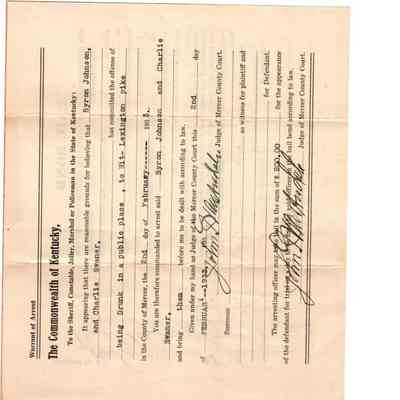 Warrant of Arrest
The Commonwealth of Kentucky.
To the Sheriff, Constable, Jailer, Marshal or Policeman in the State of Kentucky:
It appearing that there are reasonable grounds for believing that Byron Johnson,
and Charlie Swaner,
has committed the offense of
being Drunk in a public place , to Wit- Lexington pike
in the County of Mercer, the 2nd day of February------ 1913.
You are therefore commanded to arrest said Byron Johnson and Charlie
Swaner,
and bring them before me to be dealt with according to law.
Given under my hand as Judge of the Mercer County Court this 2nd day
of FEBRUARY--1913,
Judge of Mercer County Court.
Summon as witness for plaintiff and
for Defendant.
The arresting officer may bail in the sum of $ for the appearance
of the defendant for trial bail bond according to law.
Judge of Mercer County Court.